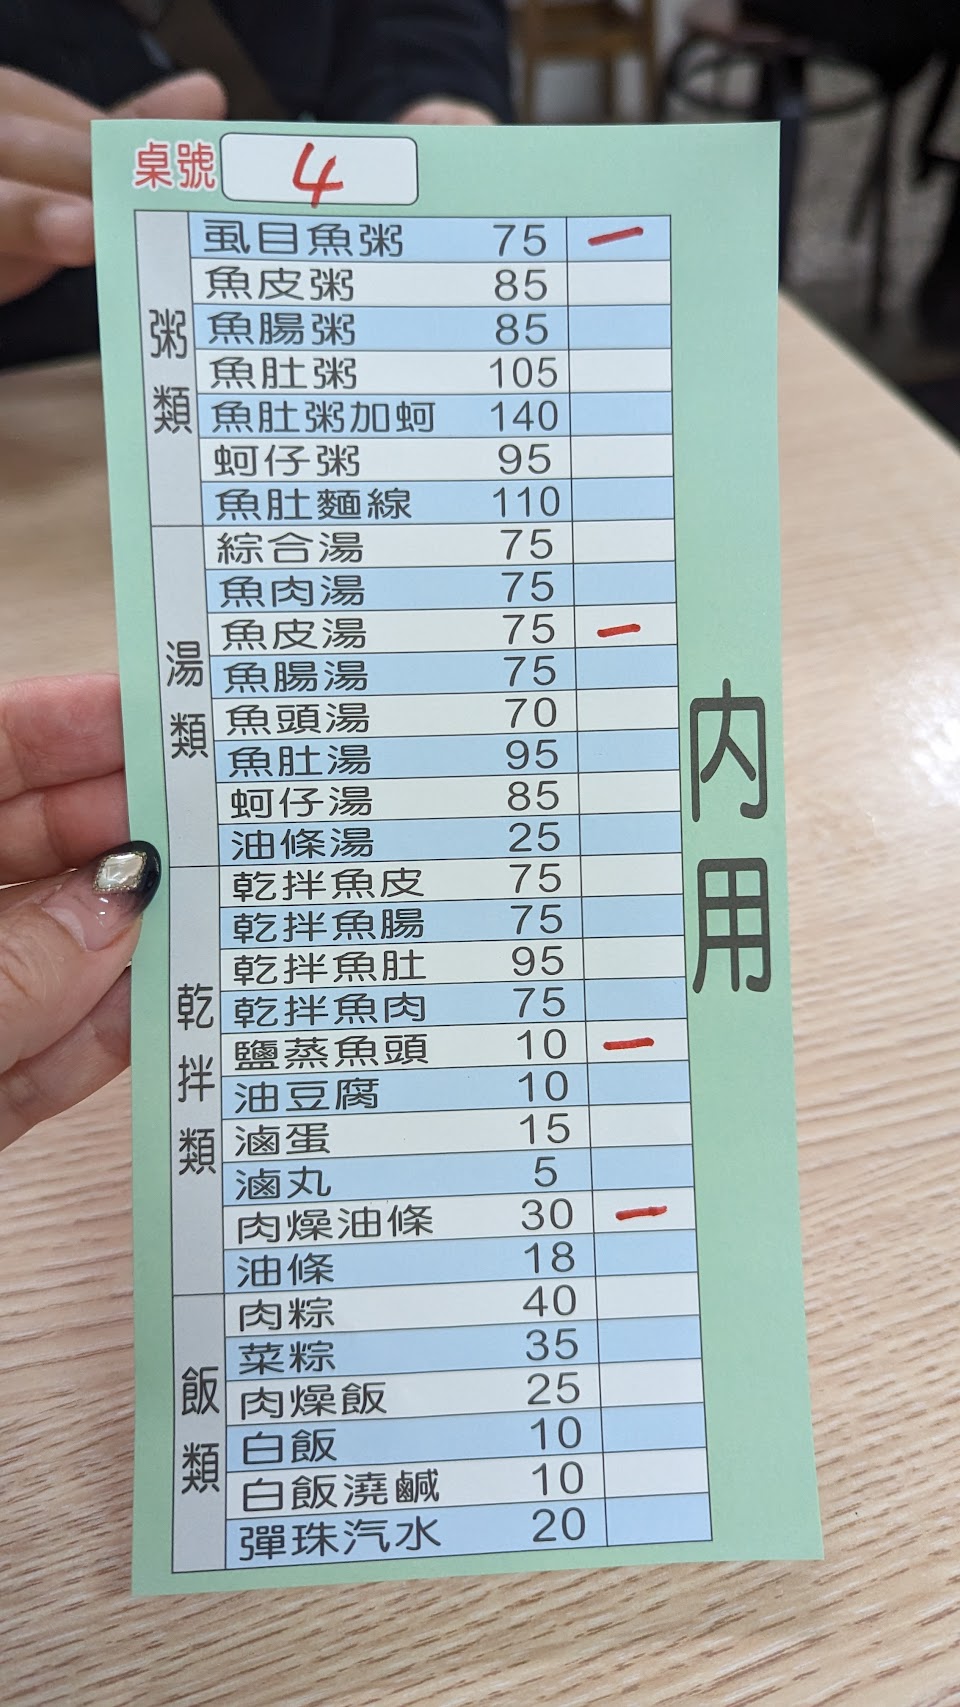 桌號 4
粥類
虱目魚粥 75 一
魚皮粥 85
魚腸粥 85
魚肚粥 105
魚肚粥加蚵 140
蚵仔粥 95
魚肚麵線 110
湯類
綜合湯 75
魚肉湯 75
魚皮湯 75 一
魚腸湯 75
魚頭湯 70
魚肚湯 95
蚵仔湯 85
油條湯 25
乾拌類
乾拌魚皮 75
乾拌魚腸 75
乾拌魚肚 95
乾拌魚肉 75
鹽蒸魚頭 10 一
油豆腐 10
滷蛋 15
滷丸 5
肉燥油條 30 一
油條 18
飯類
肉粽 40
菜粽 35
肉燥飯 25
白飯 10
白飯澆鹹 10
彈珠汽水 20
內用